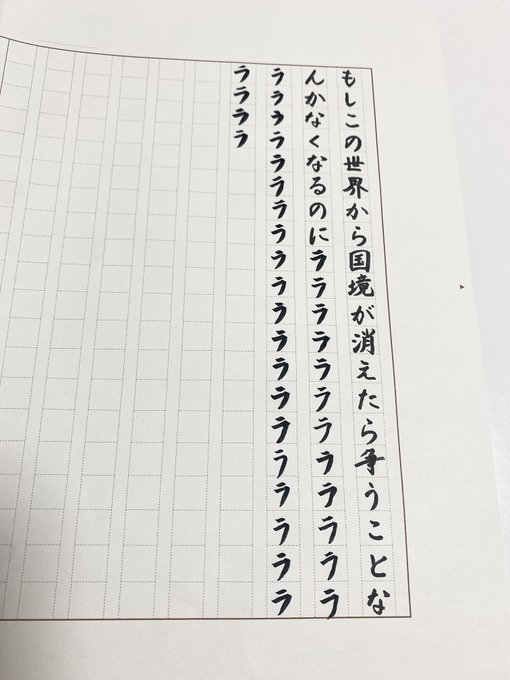 もしこの世界から国境が消えたら争うことな
んかなくなるのにララララララララララララ
ララララララララララララララララララララ
ララララ